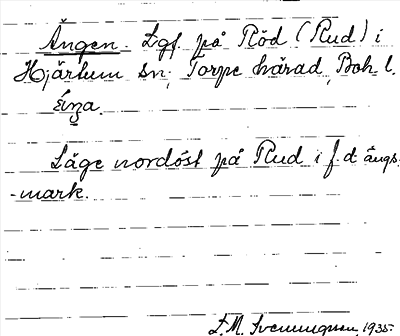 Ängen. Lgf. på Röd (Rud) i
Hjärtum sn; Torpe härad, Boh. l.
Läge nordöst på Rud i f.d. ängs-
-mark.
1935.